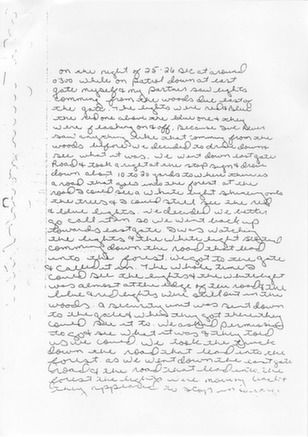 On the night of 25-26 Dec at around
0300 while on patrol down at east
gate myself & my partner saw lights
coming from the woods due east of
the gate. The lights were red & blue
the red one above the blue one & they
were flashing on & off. Because I've never
saw anything like that coming from the
woods before we decided to drive down &
see what it was. We went down east gate
road & took a right at the stop sign & drove
down about 10 to 20 yards to where there is
a road that goes into the forest. At the
road I could see a white light shining onto
the trees & I could still see the red
& blue lights. We decided we better
go call it in so we went back up
towards east gate. I was watching
the lights & the white light started
coming down the road that lead
into the forest. We got to the gate
& called it in. The whole time I
could see the lights & the white light
was almost at the edge of the road & the
blue and red lights were still out in the
woods. A security unit was sent down
to the gate & when they got there they
could see it to. We asked permission
to go & see what it was & they told
us we could. We took the truck
down the road that lead into the
forest. As we went down the east gate
road & the road that lead into the
forest the lights were moving back &
they appeared to stop in a